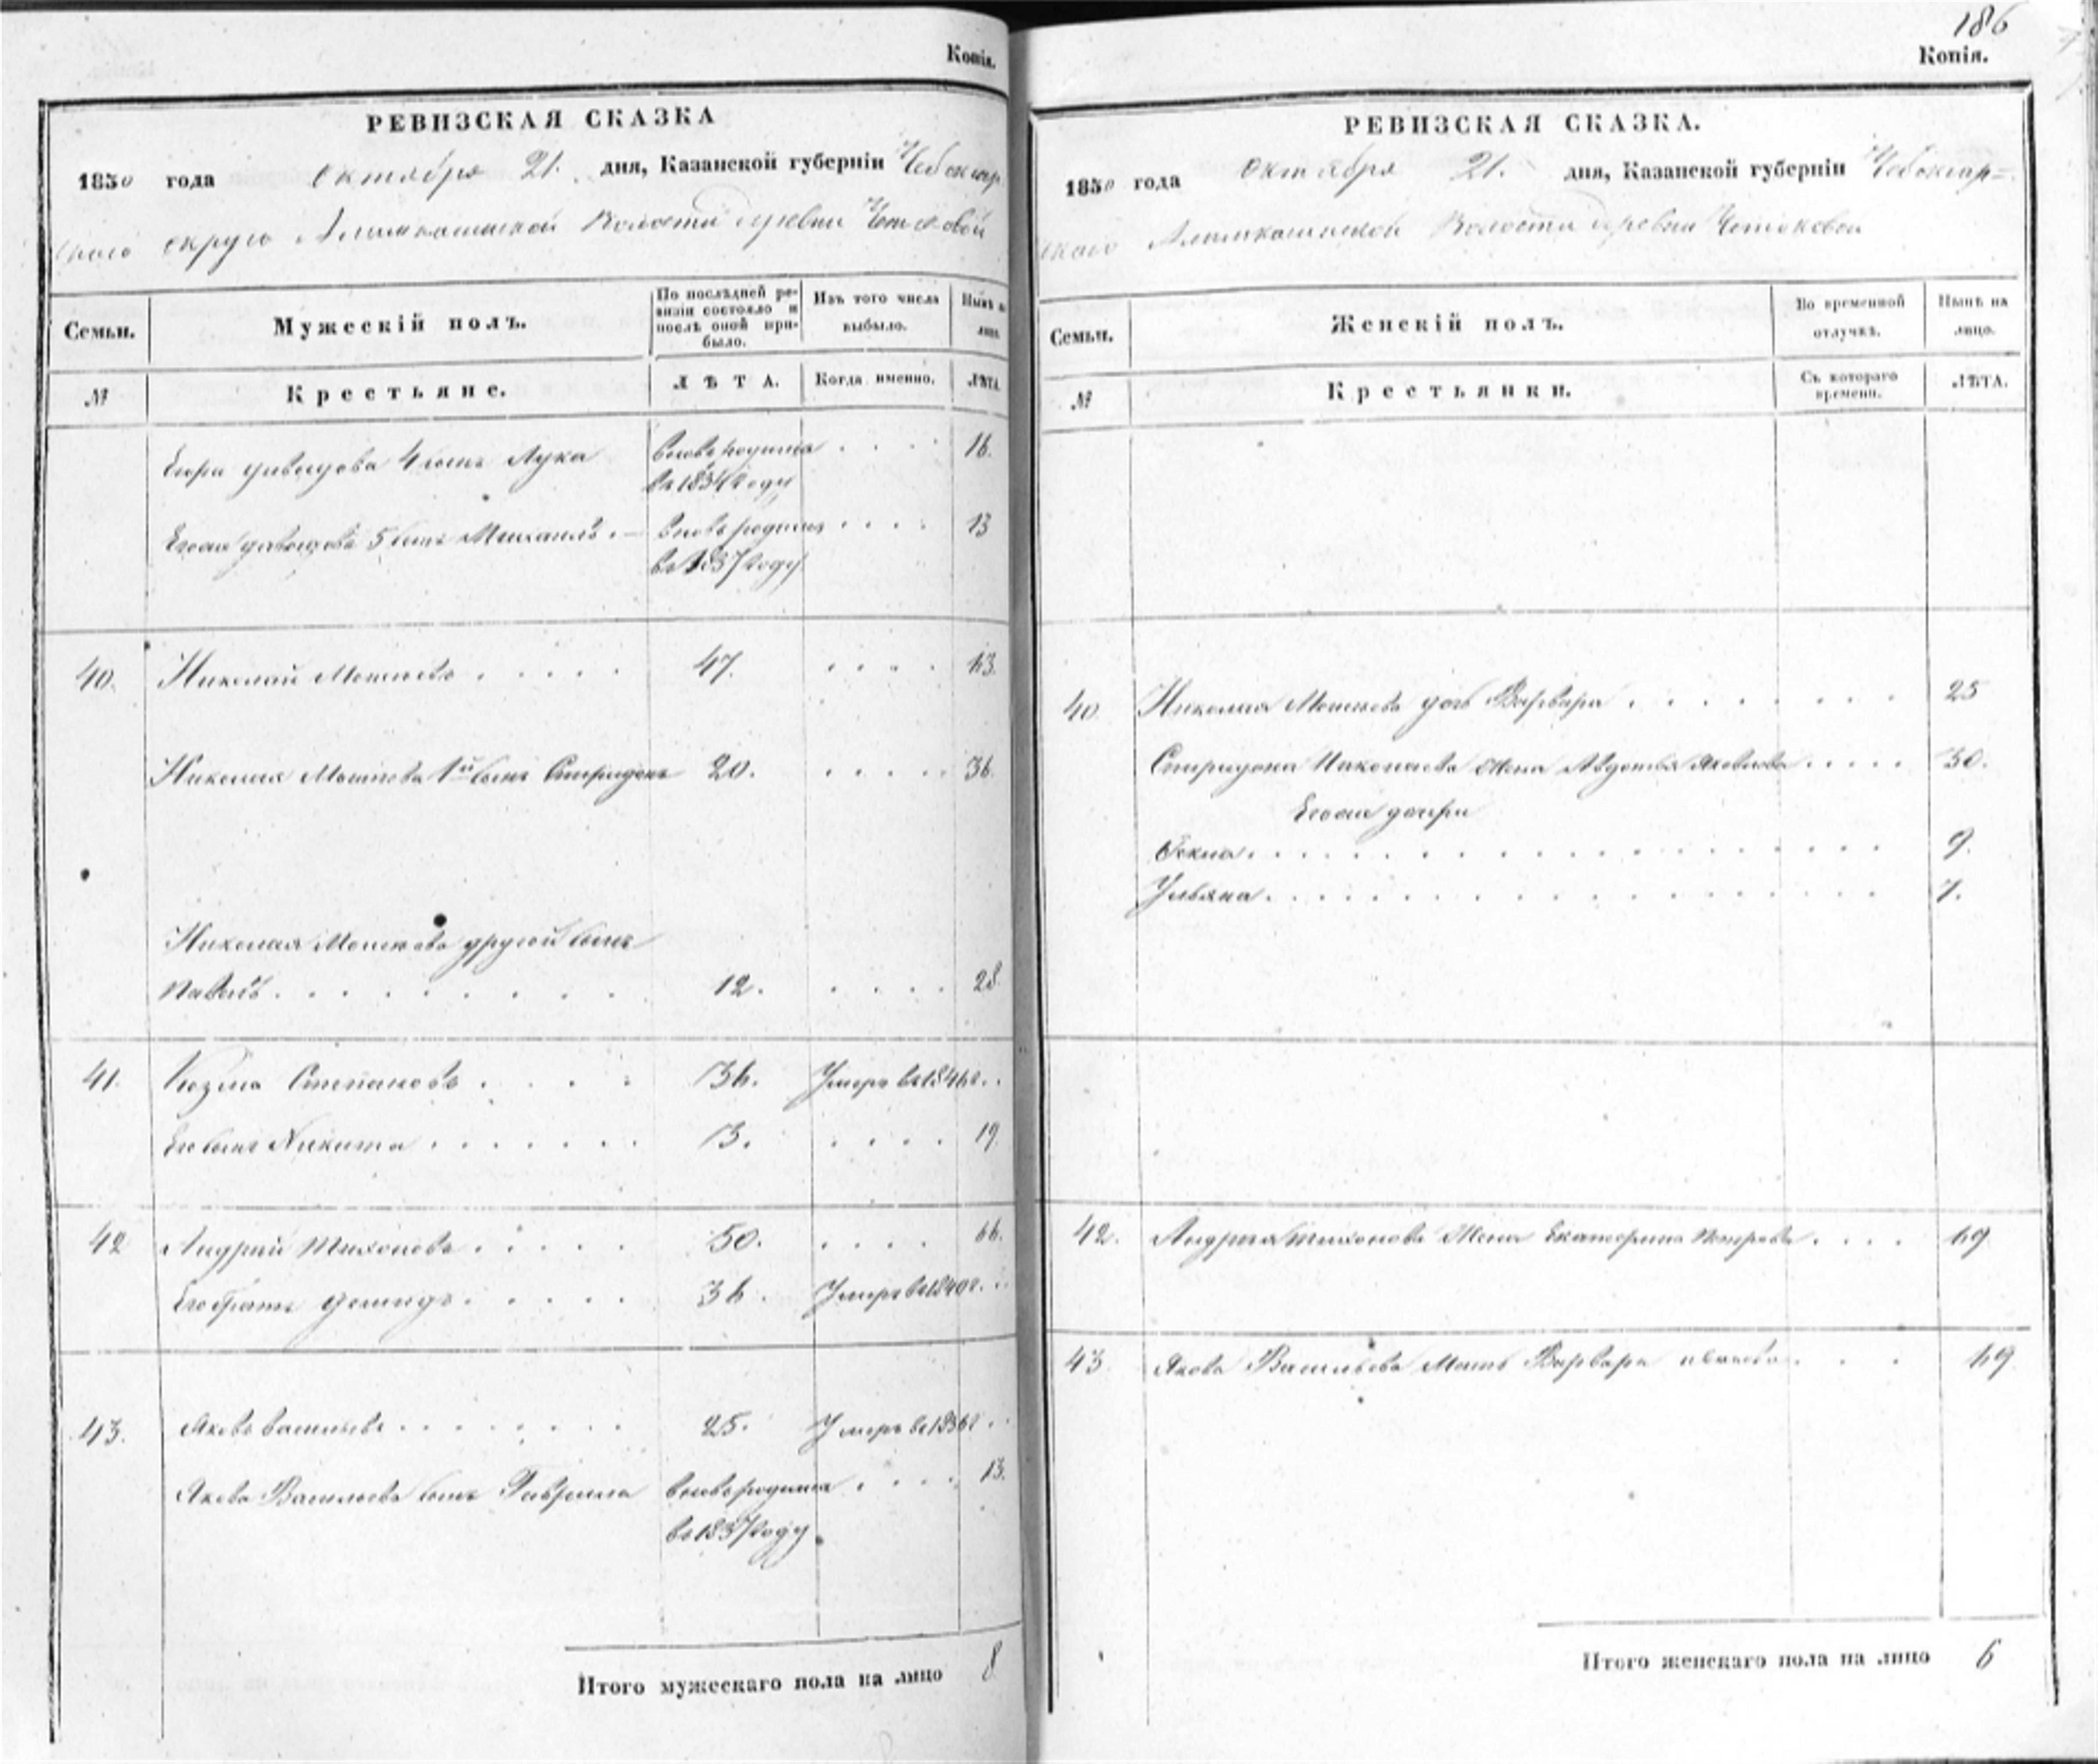 Копія.
РЕВИЗСКАЯ СКАЗКА
1850 года Октября 21. дня, Казанской губерніи Чебоксар
скаго округа Алымкасинской Волости деревни
Семьи. Мужескій полъ. По послѣдней ревизіи состояло и послѣ оной прибыло. Изъ того числа выбыло. Нынѣ на лицо.
№ Крестьяне. ЛѢТА. Когда именно. ЛѢТА.
Давыдова 4 сынъ Лука вновь родился . . . . 16.
въ 1834 году
Егоже Давыдова 5 сынъ Михаилъ. вновь родился . . . . 13
въ 1837 году
40. Николай . . . . . 47. . . . . 63.
Николая 1й сынъ Спиридонъ 20. . . . . . 36.
Николая другой сынъ
Павелъ . . . . . . . . . 12. . . . . 28
41. Козма Степановъ . . . . 36. Умеръ въ 1846 г. .
Его сынъ Никита . . . . . . . 13. . . . . 19.
42 Андрей Тихоновъ . . . . . 50. . . . . 66.
Его братъ Демидъ . . . . . 36. Умеръ въ 1840 г. . .
43. Яковъ Васильевъ . . . . . . . . 25. Умеръ въ 1836 г . .
Якова Васильева сынъ Гаврила вновь родился . . . . 13.
въ 1837 году
Итого мужескаго пола на лицо 8
186
Копія.
РЕВИЗСКАЯ СКАЗКА.
1850 года Октября 21. дня, Казанской губерніи Чебоксар=
скаго Алымкасинской Волости деревни
Семьи. Женскій полъ. Во временной отлучкѣ. Нынѣ на лицо.
№ Крестьянки. Съ котораго времени. ЛѢТА.
40 Николая дочь Варвара . . . . . . . . 25
Спиридона Николаева Жена Авдотья Яковлева . . . . . 30.
Егоже дочери
Фекла . . . . . . . . . . . . . . . . . 9.
Ульяна . . . . . . . . . . . . . . . . . 7.
42. Андрея Тихонова Жена Екатерина Петрова . . . . 69
43 Якова Васильева Мать Варвара . . . 69
Итого женскаго пола на лицо 6